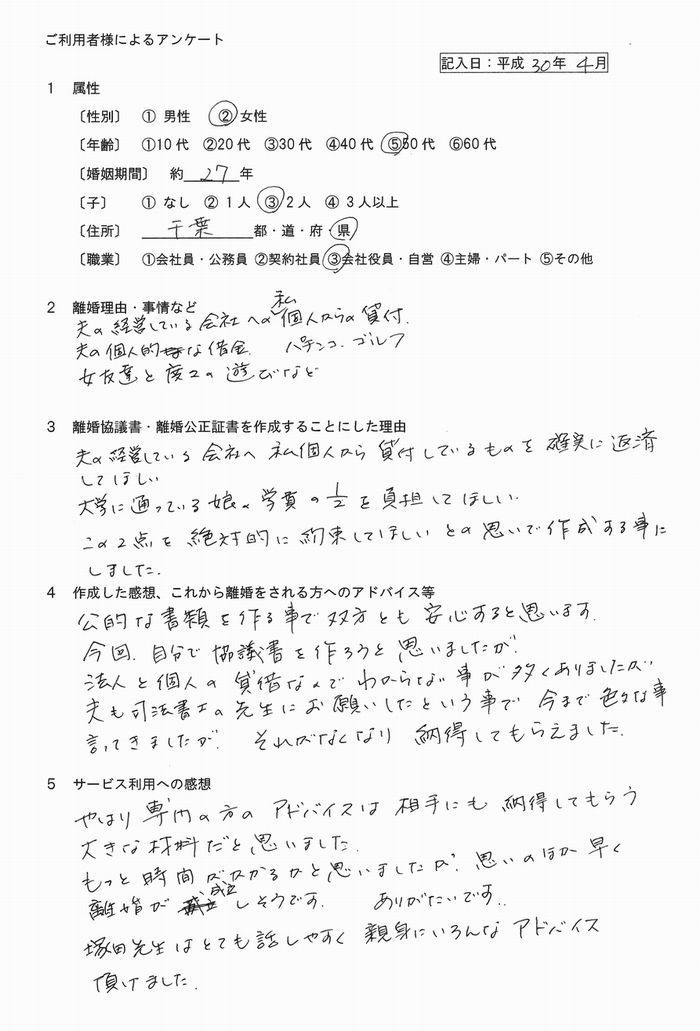 ご利用者様によるアンケート
記入日：平成 30年 4月
1 属性
〔性別〕 ① 男性 ② 女性
〔年齢〕 ①10代 ②20代 ③30代 ④40代 ⑤50代 ⑥60代
〔婚姻期間〕 約 27 年
〔子〕 ① なし ② 1人 ③ 2人 ④ 3人以上
〔住所〕 千葉 都・道・府・県
〔職業〕 ①会社員・公務員 ②契約社員 ③会社役員・自営 ④主婦・パート ⑤その他
2 離婚理由・事情など
夫の経営している会社への私個人からの貸付.
夫の個人的な借金. パチンコ.ゴルフ
女友達と度々の遊びなど
3 離婚協議書・離婚公正証書を作成することにした理由
夫の経営している会社へ 私個人から貸付しているものを確実に返済
してほしい
大学に通っている娘の学費の1/2を負担してほしい.
この2点を絶対的に約束してほしいとの思いで作成する事に
しました.
4 作成した感想、これから離婚をされる方へのアドバイス等
公的な書類を作る事で双方とも安心すると思います.
今回.自分で協議書を作ろうと思いましたが.
法人と個人の貸借なんでわからない事が多くありましたが
夫も司法書士の先生にお願いしたという事で 今まで色々な事
言ってきましたが. それがなくなり 納得してもらえました.
5 サービス利用への感想
やはり専門の方のアドバイスは相手にも納得してもらう
大きな材料だと思いました.
もっと時間がかかるかと思いましたが.思いのほか早く
離婚が成立しそうです. ありがたいです..
塚田先生はとても話しやすく親身にいろんなアドバイス
頂けました.